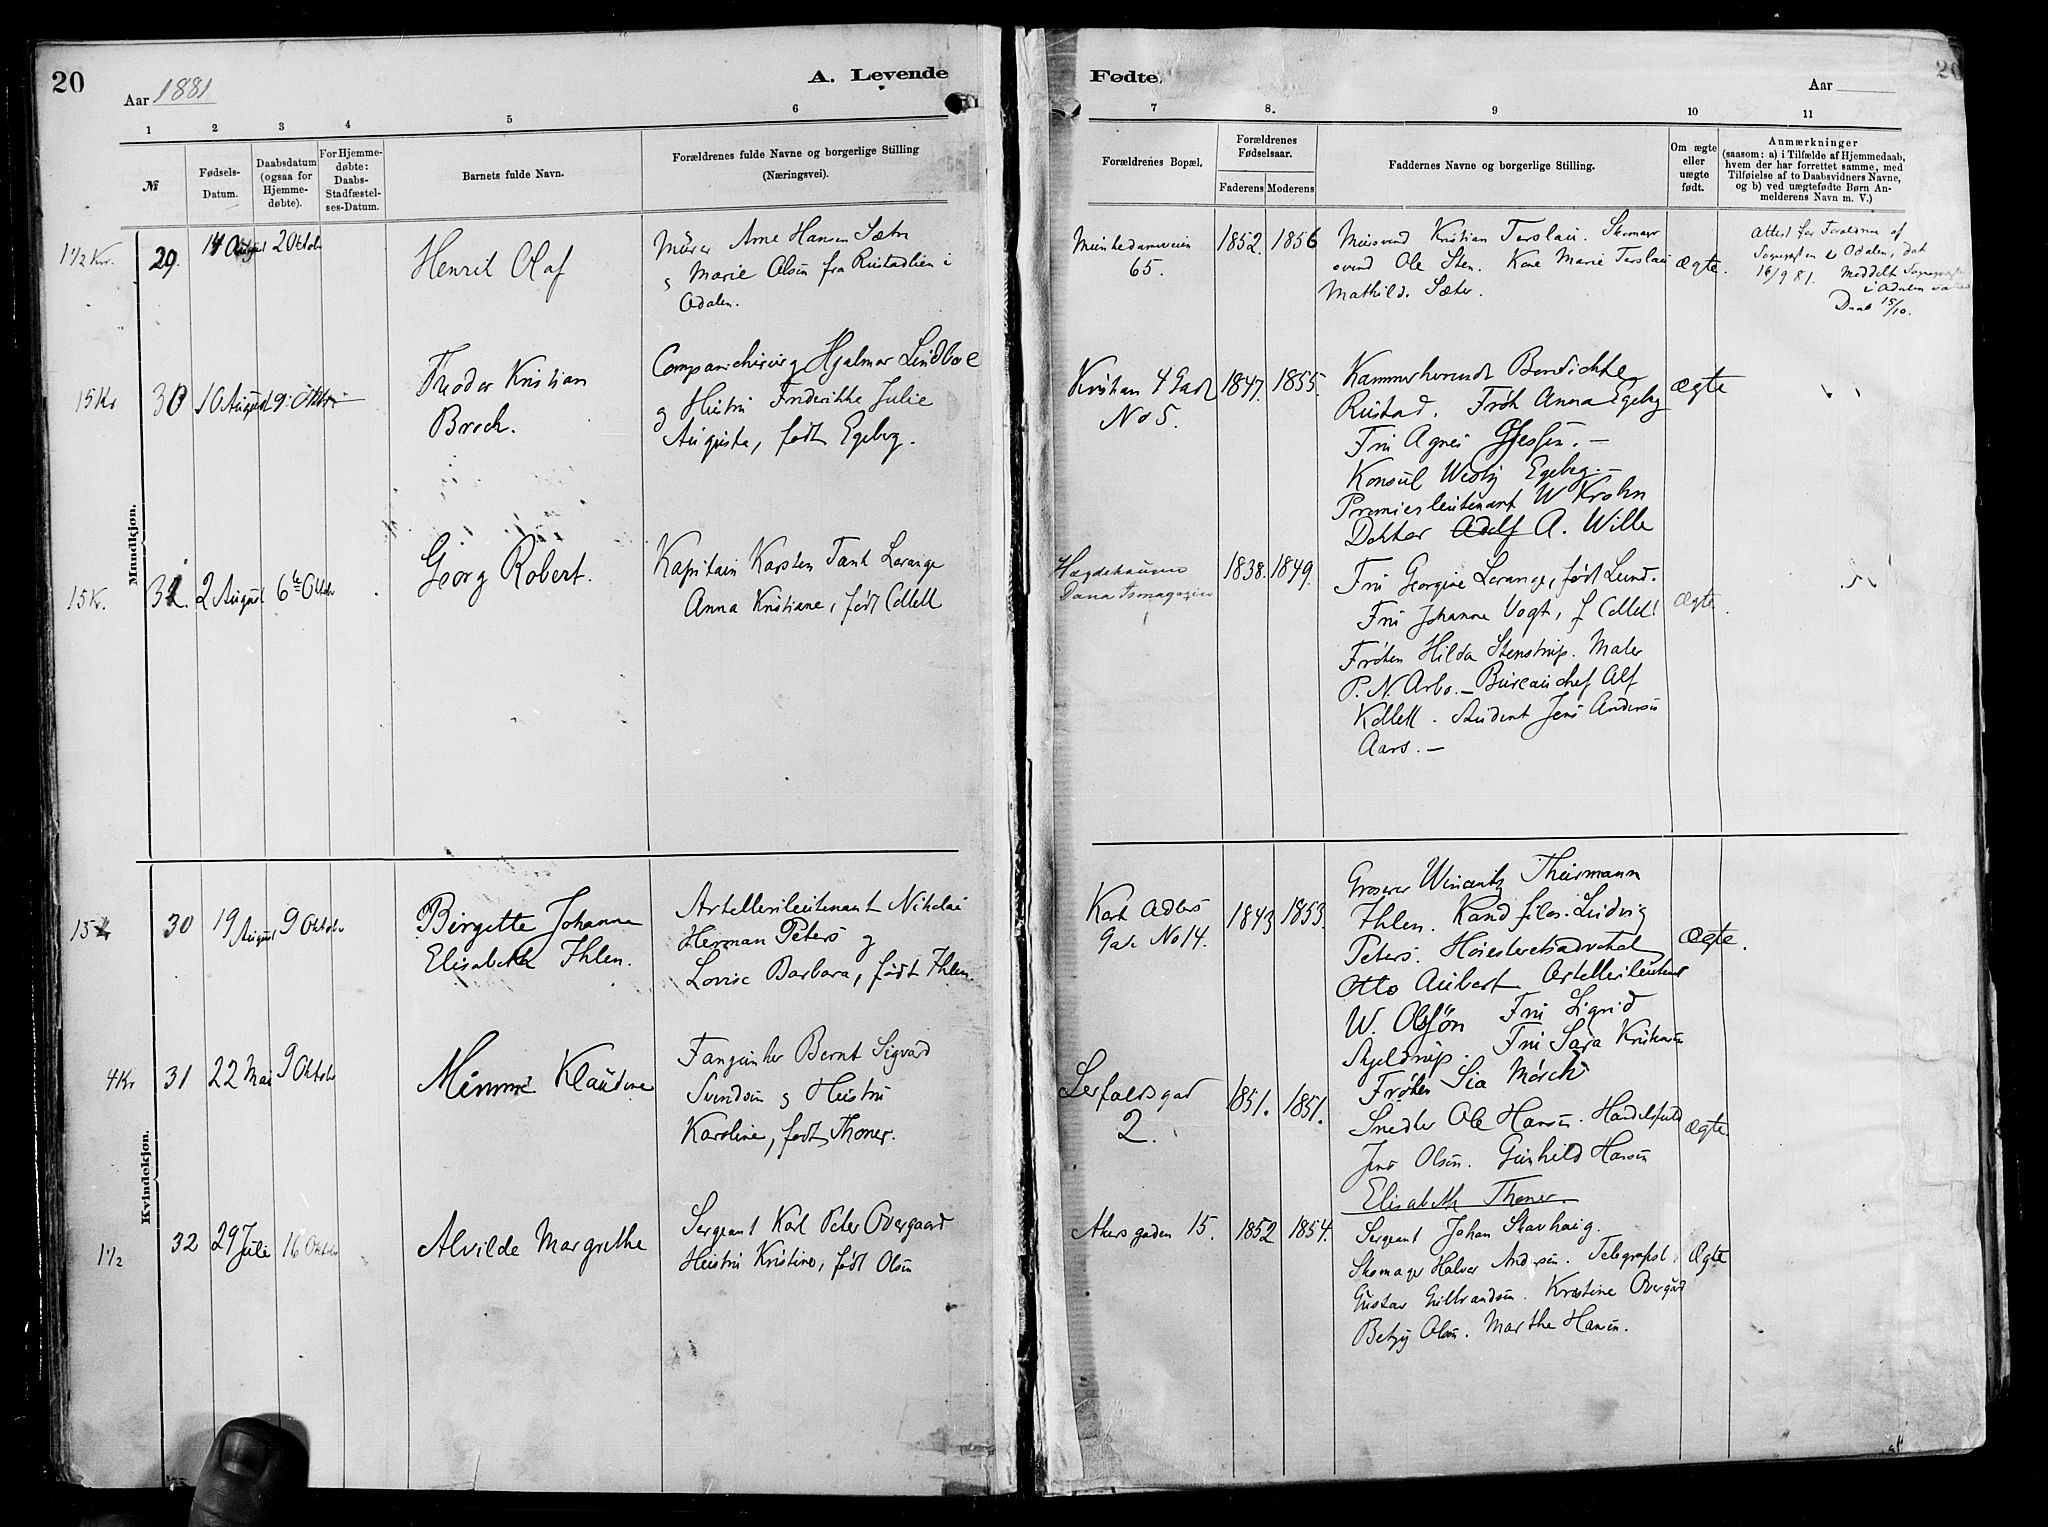 20
Aar 1881
A. Levende
1 2 3 4 5 6
№
Fødsels-
Datum.
Daabsdatum
(ogsaa for
Hjemme-
døbte).
For Hjemme-
døbte:
Daabs-
Stadfæstel-
ses-Datum.
Barnets fulde Navn.
Forældrenes fulde Navne og borgerlige Stilling
(Næringsvei).
Mandkjøn.
1 1/2 Kr. 29. 14 August 2 Oktober
Henrik Olaf
Murer Arne Hansen Sæter
og Marie Olsen fra Rustadlien i
Odalen.
15 Kr 30 10 August 9 Oktbr
Theodor Kristian
Brock.
Companichirurg Hjalmar Lindboe
og Hustru Frederikke Julie
Augusta, født Egeberg.
15 Kr. 31. 2 August 6te Oktbr
Georg Robert.
Kapitain Karsten Tank Lorange
Anna Kristiane, født Collett
Kvindekjøn.
15 30 19 August 9 Oktober
Birgitte Johanne
Elisabeth Ihlen.
Artellerileutenant Nikolai
Herman Peters og
Lovise Barbara, født Ihlen
4 Kr 31 22 Mai 9 Oktobr
Mimmi Klaudine
Bernt Sigvard
Svendsen og Hustru
Karoline, født Thoner.
1 1/2 32 29 Juli 16 Oktober
Alvilde Margrethe
Sergeant Karl Peter Overgaard
Hustru Kristine, født Olsen
Fødte.
Aar
20
7 8. 9 10 11
Forældrenes Bopæl.
Forældrenes
Fødselsaar.
Faderens Moderens
Faddernes Navne og borgerlige Stilling.
Om ægte
eller
uægte
født.
Anmærkninger
(saasom: a) i Tilfælde af Hjemmedaab,
hvem der har forrettet samme, med
Tilføielse af to Daabsvidners Navne,
og b) ved uægtefødte Børn An-
melderens Navn m. V.)
Munkedamsveien
65.
1852. 1856
Mursvend Kristian Torslau. Skomager
svend Ole Sten. Kone Marie Torslau
Mathilde Sæter.
Ægte.
Attest for Forældrene af
Sognepresten i Odalen, dat
16/9 81. Meddelt Sognepresten
i Odalen
Daab 15/10.
Kristian 4 Gade
No 5.
1847. 1855.
Kammerherreinde Benedichte
Rustad. Frøk Anna Egeberg
Fru Agnes Gjessen. —
Konsul Westye Egeberg. —
Premierleutenant W Krohn
Doktor Adolf A. Wille
Ægte
Hægdehaugen
1838. 1849.
Fru Georgine Lorange, født Lund.
Fru Johanne Vogt, f Collett
Frøken Hilda Stenstrup. Maler
P. N. Arbo. — Bureauchef Alf
Kollett. Student Jens Andersen
Aars. —
Ægte.
Karl Adlers
Gade No 14.
1843 1853.
Groserer Winantz Thurmann
Ihlen. Kand filos. Ludvig
Peters. Høiesteretsadvokat
Otto Aubert Artellerileutenant
W. Olssøn Fru Sigrid
Skjeldrup. Fru Sara Kristensen
Frøken Sia Mørch
Ægte.
Lerfaldsgad
2.
1851. 1851.
Snedker Ole Hansen. Handelsfuld
Jens Olsen. Gunhild Hansen
Elisabeth Thoner.
Ægte.
Akersgaden 15.
1852 1854.
Sergeant Johan Stavhaug.
Skomager Halvor Andersen. Telegrafist
Gustav Gulbrandsen. Kristine Overgård
Betzy Olsen. Marthe Hansen.
Ægte